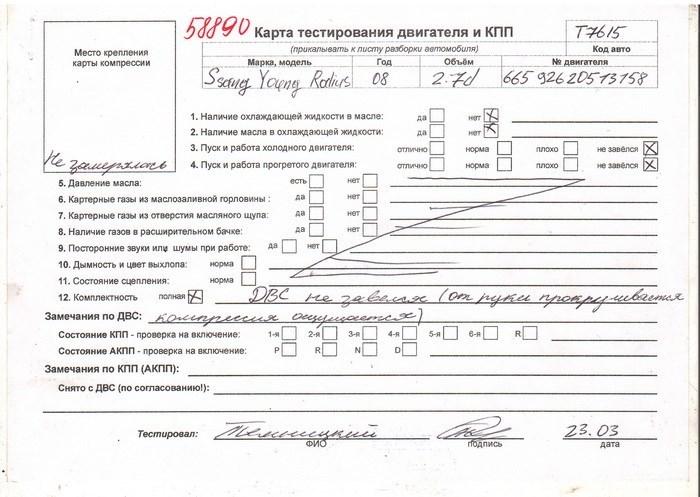 58890 Карта тестирования двигателя и КПП T7615
(прикалывать к листу разборки автомобиля) Код авто
Место крепления карты компрессии
Марка, модель Год Объём № двигателя
Ssang Young Rodius 08 2.7d 665 926 20513158
1. Наличие охлаждающей жидкости в масле: да нет
2. Наличие масла в охлаждающей жидкости: да нет
3. Пуск и работа холодного двигателя: отлично норма плохо не завёлся
Не замерялось
4. Пуск и работа прогретого двигателя: отлично норма плохо не завёлся
5. Давление масла: есть нет
6. Картерные газы из маслозаливной горловины : да нет
7. Картерные газы из отверстия масляного щупа: да нет
8. Наличие газов в расширительном бачке: да нет
9. Посторонние звуки или шумы при работе: да нет
10. Дымность и цвет выхлопа: норма
11. Состояние сцепления: норма
12. Комплектность полная ДВС не завелся (от руки прокручивается
Замечания по ДВС: компрессия ощущается)
Состояние КПП - проверка на включение: 1-я 2-я 3-я 4-я 5-я 6-я R
Состояние АКПП - проверка на включение: P R N D
Замечания по КПП (АКПП):
Снято с ДВС (по согласованию!):
Тестировал: Темницкий 23.03
ФИО подпись дата